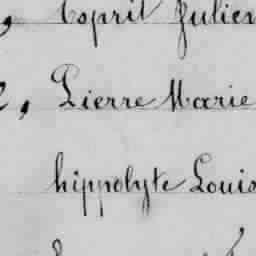 , Esprit Julien
, Pierre Marie
hippolyte Louis